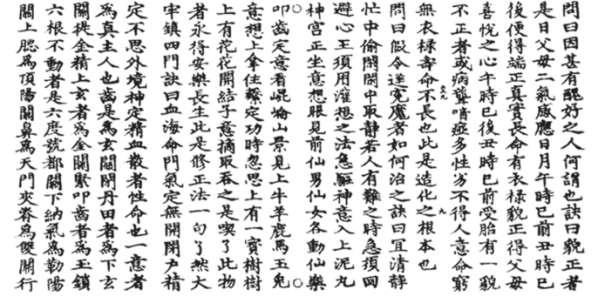 問曰因甚有醜好之人何謂也訣曰貌正者
是日父母二氣感應日月午時已前丑時已
後便得端正真實長命有衣祿貌正得父母
喜悅之心午時已後丑時已前受胎有一貌
不正者或病聾啞疾多性劣不得人意命窮
無衣祿壽命不長也此是造化之根本也
問曰假令逆冤魔者如何治之訣曰宜清靜
忙中偷閒閙中取靜若人有難之時急須回
避心王須用溼想之法急驅神意入上泥丸
神宮正坐意想眼見前仙男仙女各動仙樂
叩齒定意看崐崘山景見上牛羊鹿馬玉兔
意想上拿住繫定功時忽思上有一寶樹樹
上有花花開結子意摘取吞之是喫了此物
者永得安樂長生此是修正法一句了然大
牢鎮四門訣曰血海命門氣定無開閉尸精
定不思外境神定精血散者性命也一意者
為真主人也齒是為玄關閉丹田者為下玄
關挑金精上玄者為金關緊叩齒者為玉鎖
六根不動者是六度號都關下納氣為勒陽
關上腮為頂陽關鼻為天門夾脊為雙關行